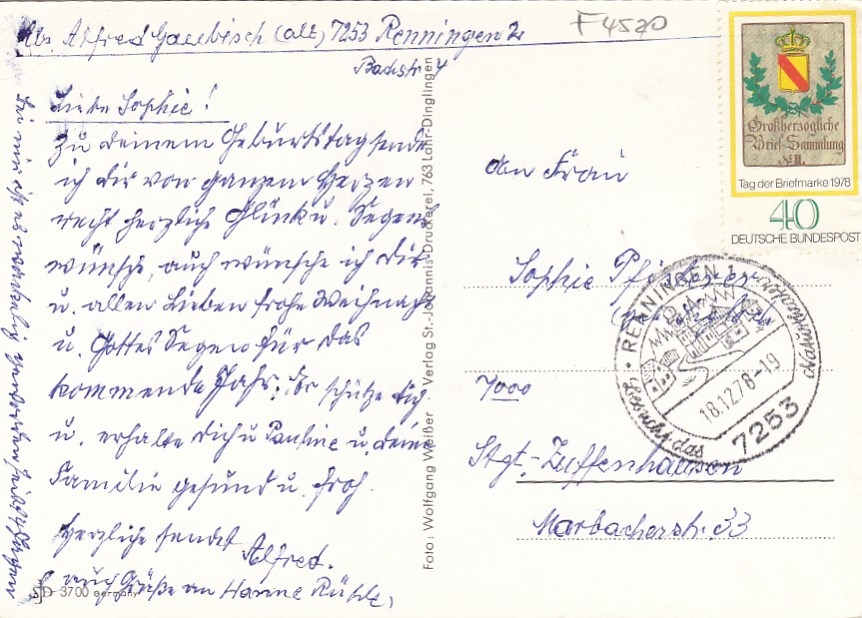 Abs. Alfred (alt) 7253 Renningen 2
Bachstr. 4
F4520
Liebe Sophie!
Zu deinem Geburtstag sende
ich dir von ganzem Herzen
recht herzliche Glück u. Segens
wünsche, auch wünsche ich dir
u. allen Lieben frohe Weihnacht
u. Gottes Segen für das
kommende Jahr. Er schütze dich
u. erhalte dich u Pauline u. deine
Familie gesund u. froh.
Herzliche sendet
Alfred.
auch Grüße an Hanne
Bei mir ist es
SJD 3700 Germany
Foto: Wolfgang Weißer Verlag St.-Johannis-Druckerei, 763 Lahr-Dinglingen
Großherzogliche
Brief-Sammlung
No. II.
Tag der Briefmarke 1978
40
DEUTSCHE BUNDESPOST
RENNINGEN 1
18.12.78-19
7253
Besucht das
An Frau
Sophie
7000
Stgt.-Zuffenhausen
Marbacherstr. 33